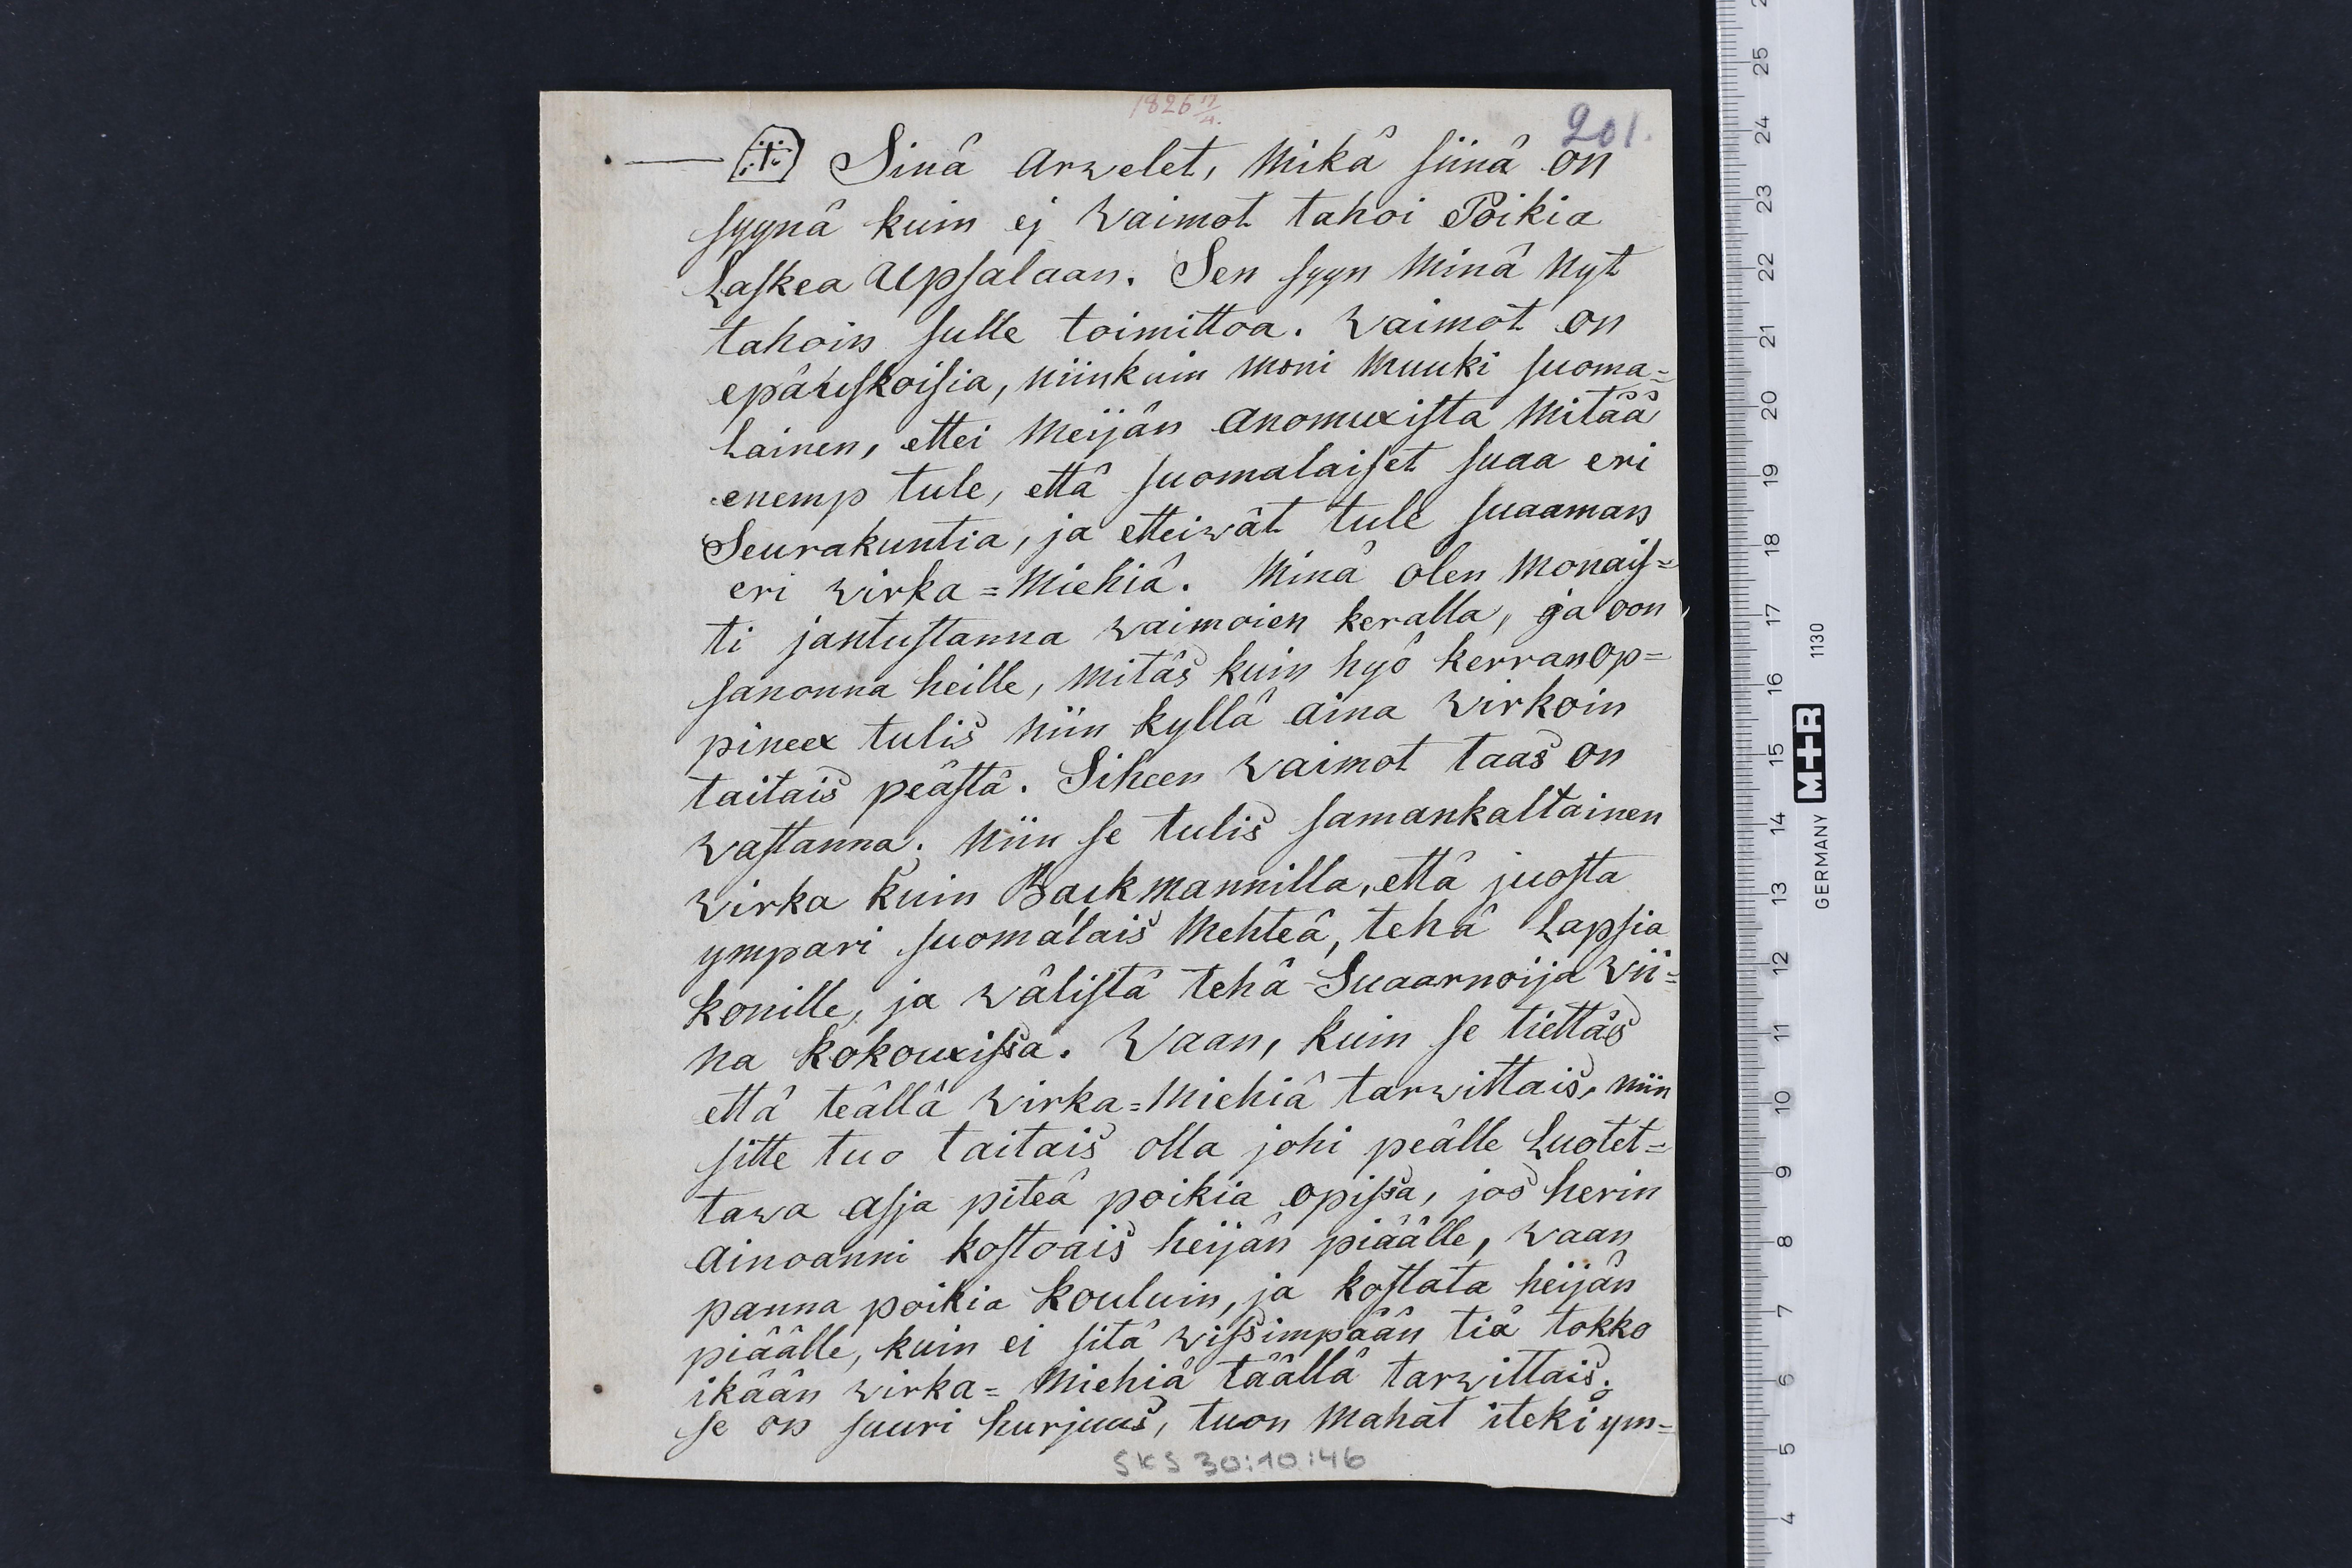 1826 17/4.
201.
Sinä arwelet, Mikä siinä on
syynä kuin ej Waimot tahoi Poikia
Laskea Upsalaan. Sen syyn Minä Nyt
tahoin sulle toimittoa. Waimot on
epäuskoisia, niinkuin moni Muuki suoma=
lainen, ettei Meijän anomuxista Mitää
enemp tule, että suomalaiset suaa eri
Seurakuntia, ja etteiwät tule suaaman
eri wirka=Miehiä. Minä olen Monais=
ti jantustanna waimoien keralla, ja oon
sanonna heille, Mitäs kuin hyö kerran op=
pineex tulis niin kyllä aina Wirkoin
taitais peästä. Siheen Waimot taas on
Wastanna. Niin se tulis samankaltainen
Wirka kuin Backmannilla, että juosta
ympari suomalais Mehteä, tehä Lapsia
konille, ja Wälistä tehä Suaarnoija Wii=
na kokouxissa. Waan, kuin se tiettäs
että teällä Wirka=Miehiä tarwittais, niin
sitte tuo taitais olla johi peälle Luotet=
tawa asja piteä poikia opissa, jos herin
ainoanni kostoais heijän piäälle, Waan
panna poikia kouluin, ja kostata heijän
piäälle, kuin ei sitä wissimpään tiä tokko
ikään wirka=Miehiä täällä tarwittais.
se on suuri hurjuus, tuon Mahat iteki ym=
SKS 30:10:46
25
24
23
22
21
20
19
18
17
16
15
14
13
12
11
10
9
8
7
6
5
4
GERMANY M+R 1130